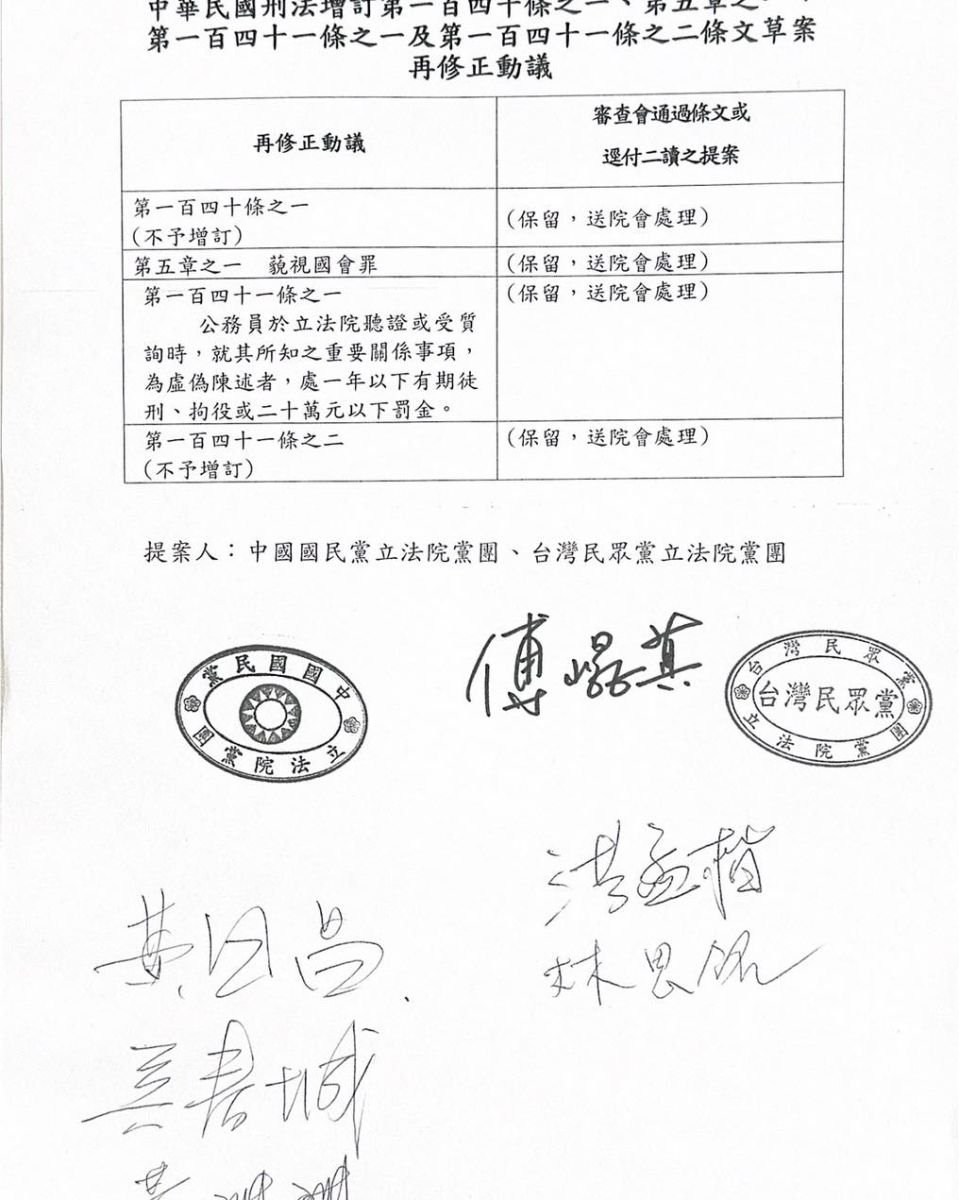 中華民國刑法增訂第一百四十條之一、第五章之一、
第一百四十一條之一及第一百四十一條之二條文草案
再修正動議
再修正動議
審查會通過條文或
逕付二讀之提案
第一百四十條之一
(不予增訂)
(保留，送院會處理)
第五章之一　藐視國會罪
(保留，送院會處理)
第一百四十一條之一
公務員於立法院聽證或受質
詢時，就其所知之重要關係事項，
為虛偽陳述者，處一年以下有期徒
刑、拘役或二十萬元以下罰金。
(保留，送院會處理)
第一百四十一條之二
(不予增訂)
(保留，送院會處理)
提案人：中國國民黨立法院黨團、台灣民眾黨立法院黨團
傅崐萁
中國國民黨
立法院黨團
台灣民眾黨
台灣民眾黨
立法院黨團
洪孟楷
黃國昌
林思銘
吳春城